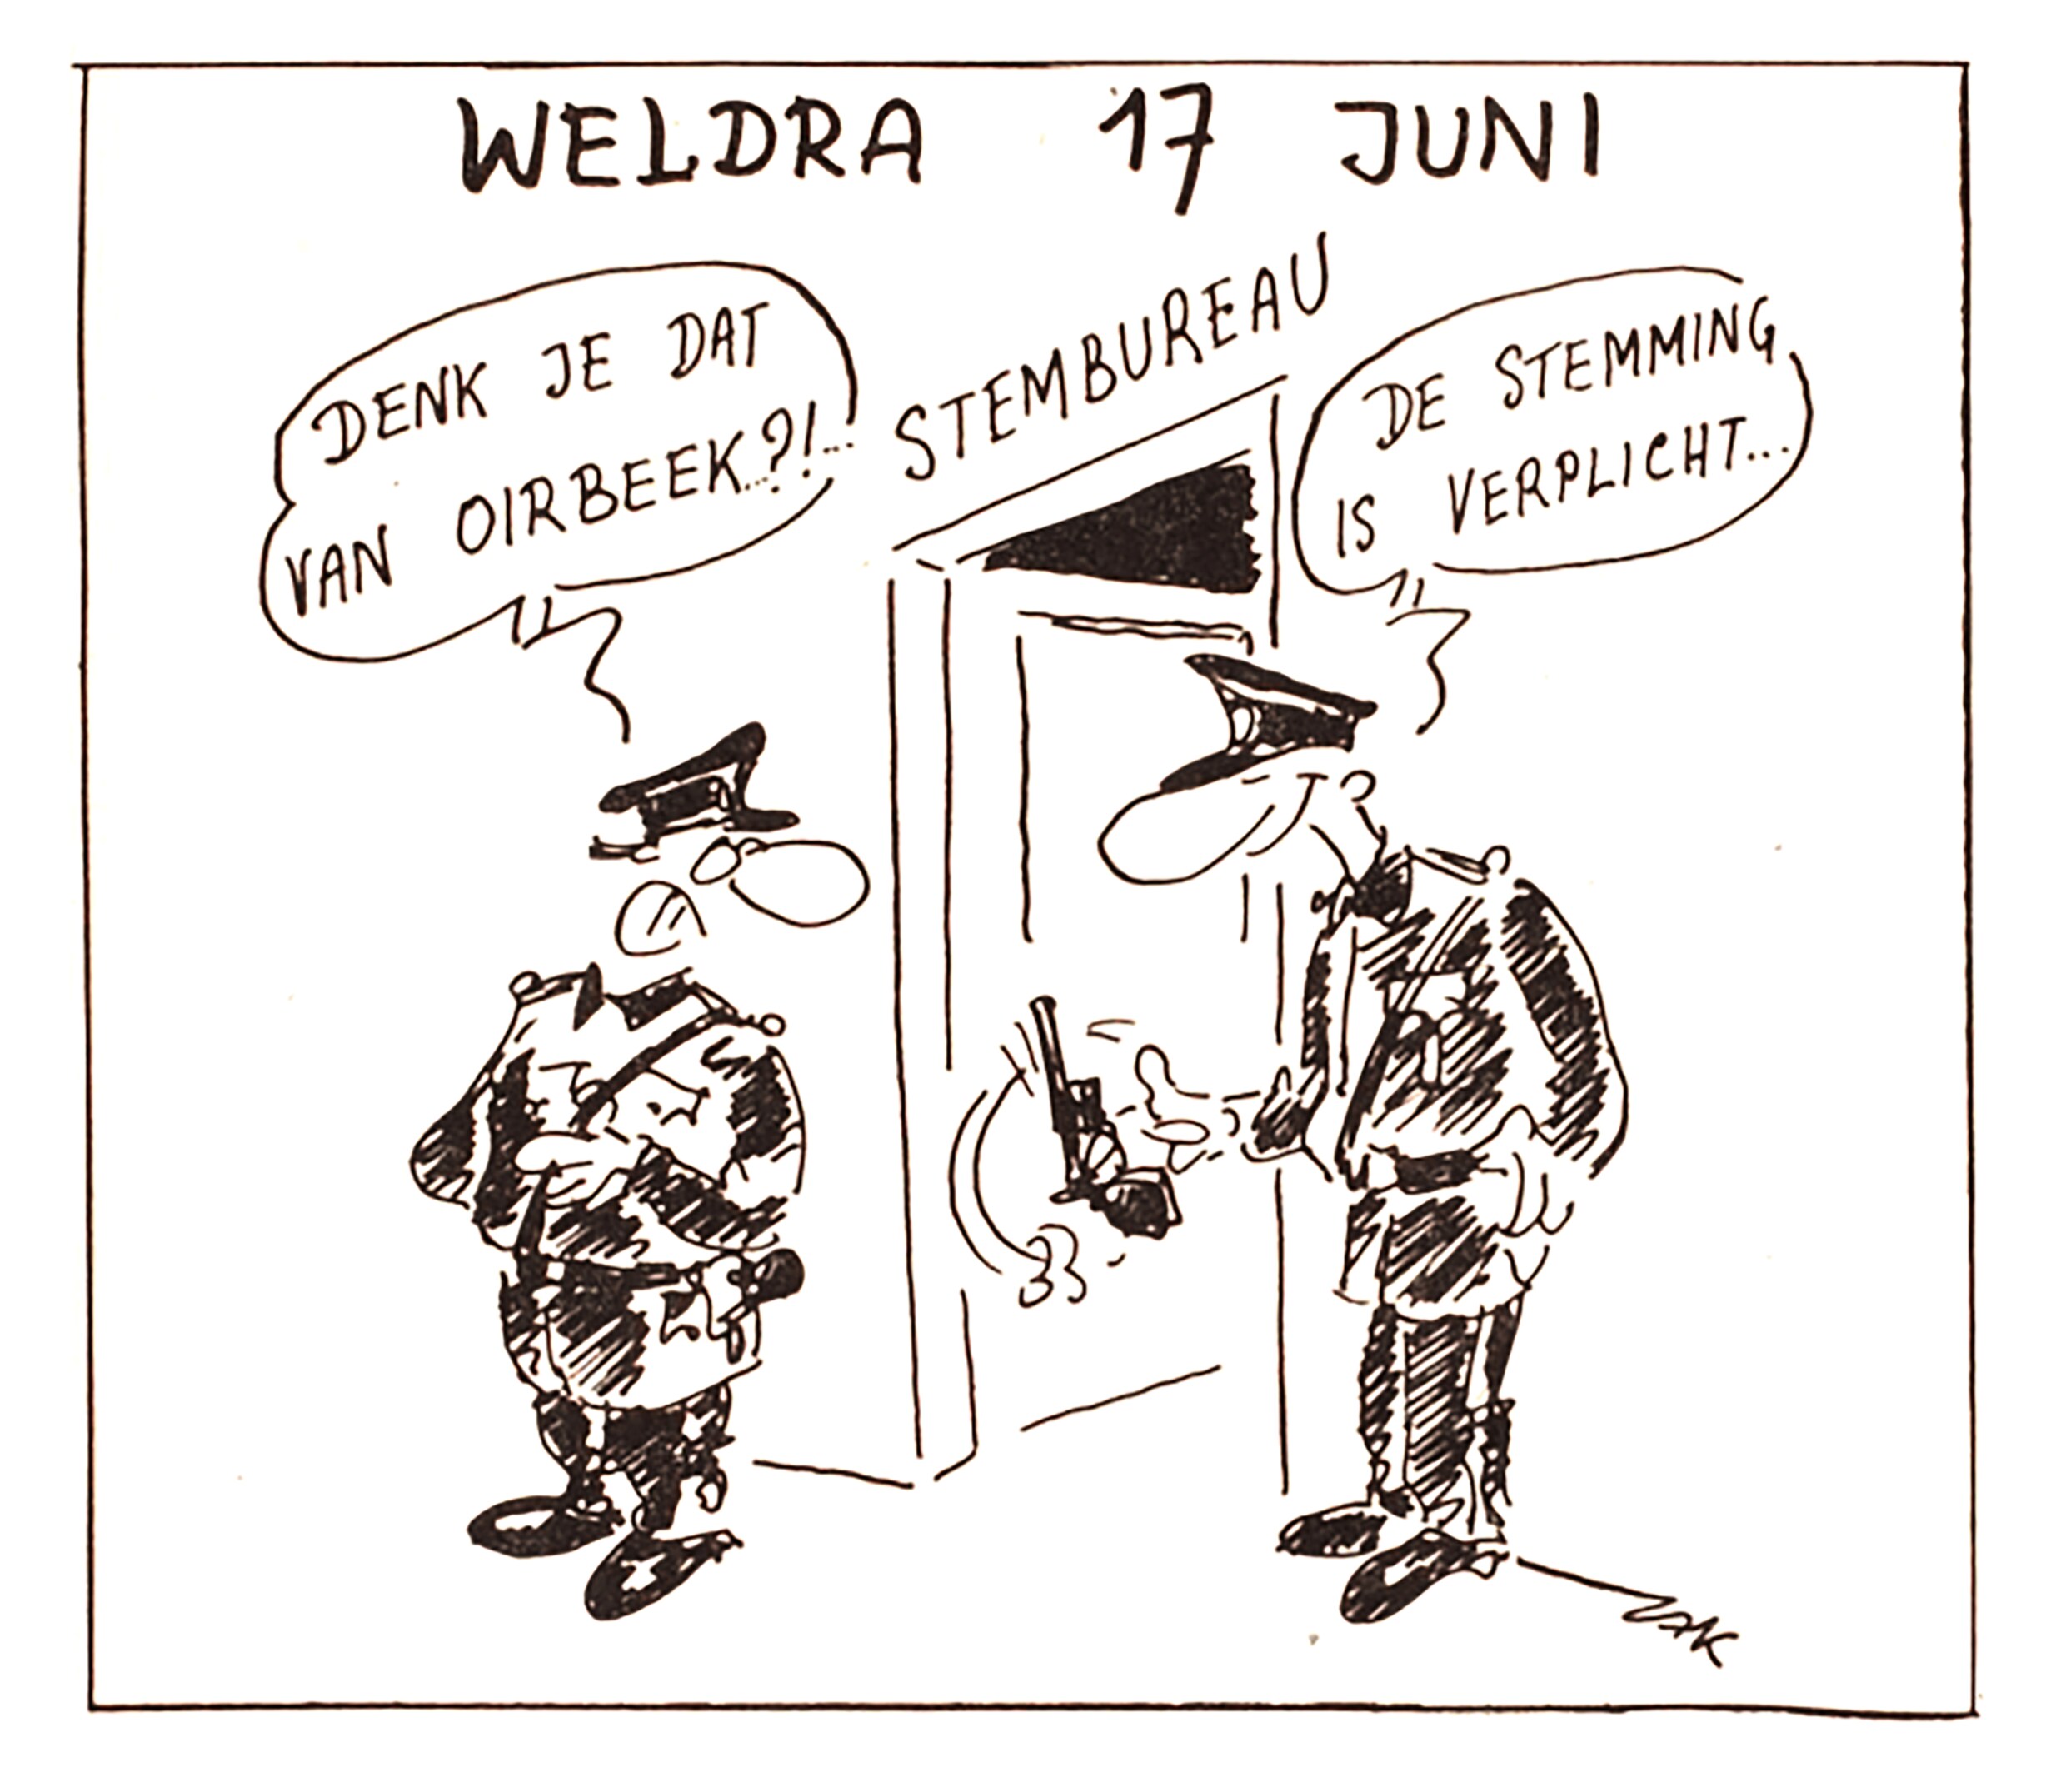 WELDRA 17 JUNI
DENK JE DAT
VAN OIRBEEK...?!...
STEMBUREAU
DE STEMMING
IS VERPLICHT...
ZAK